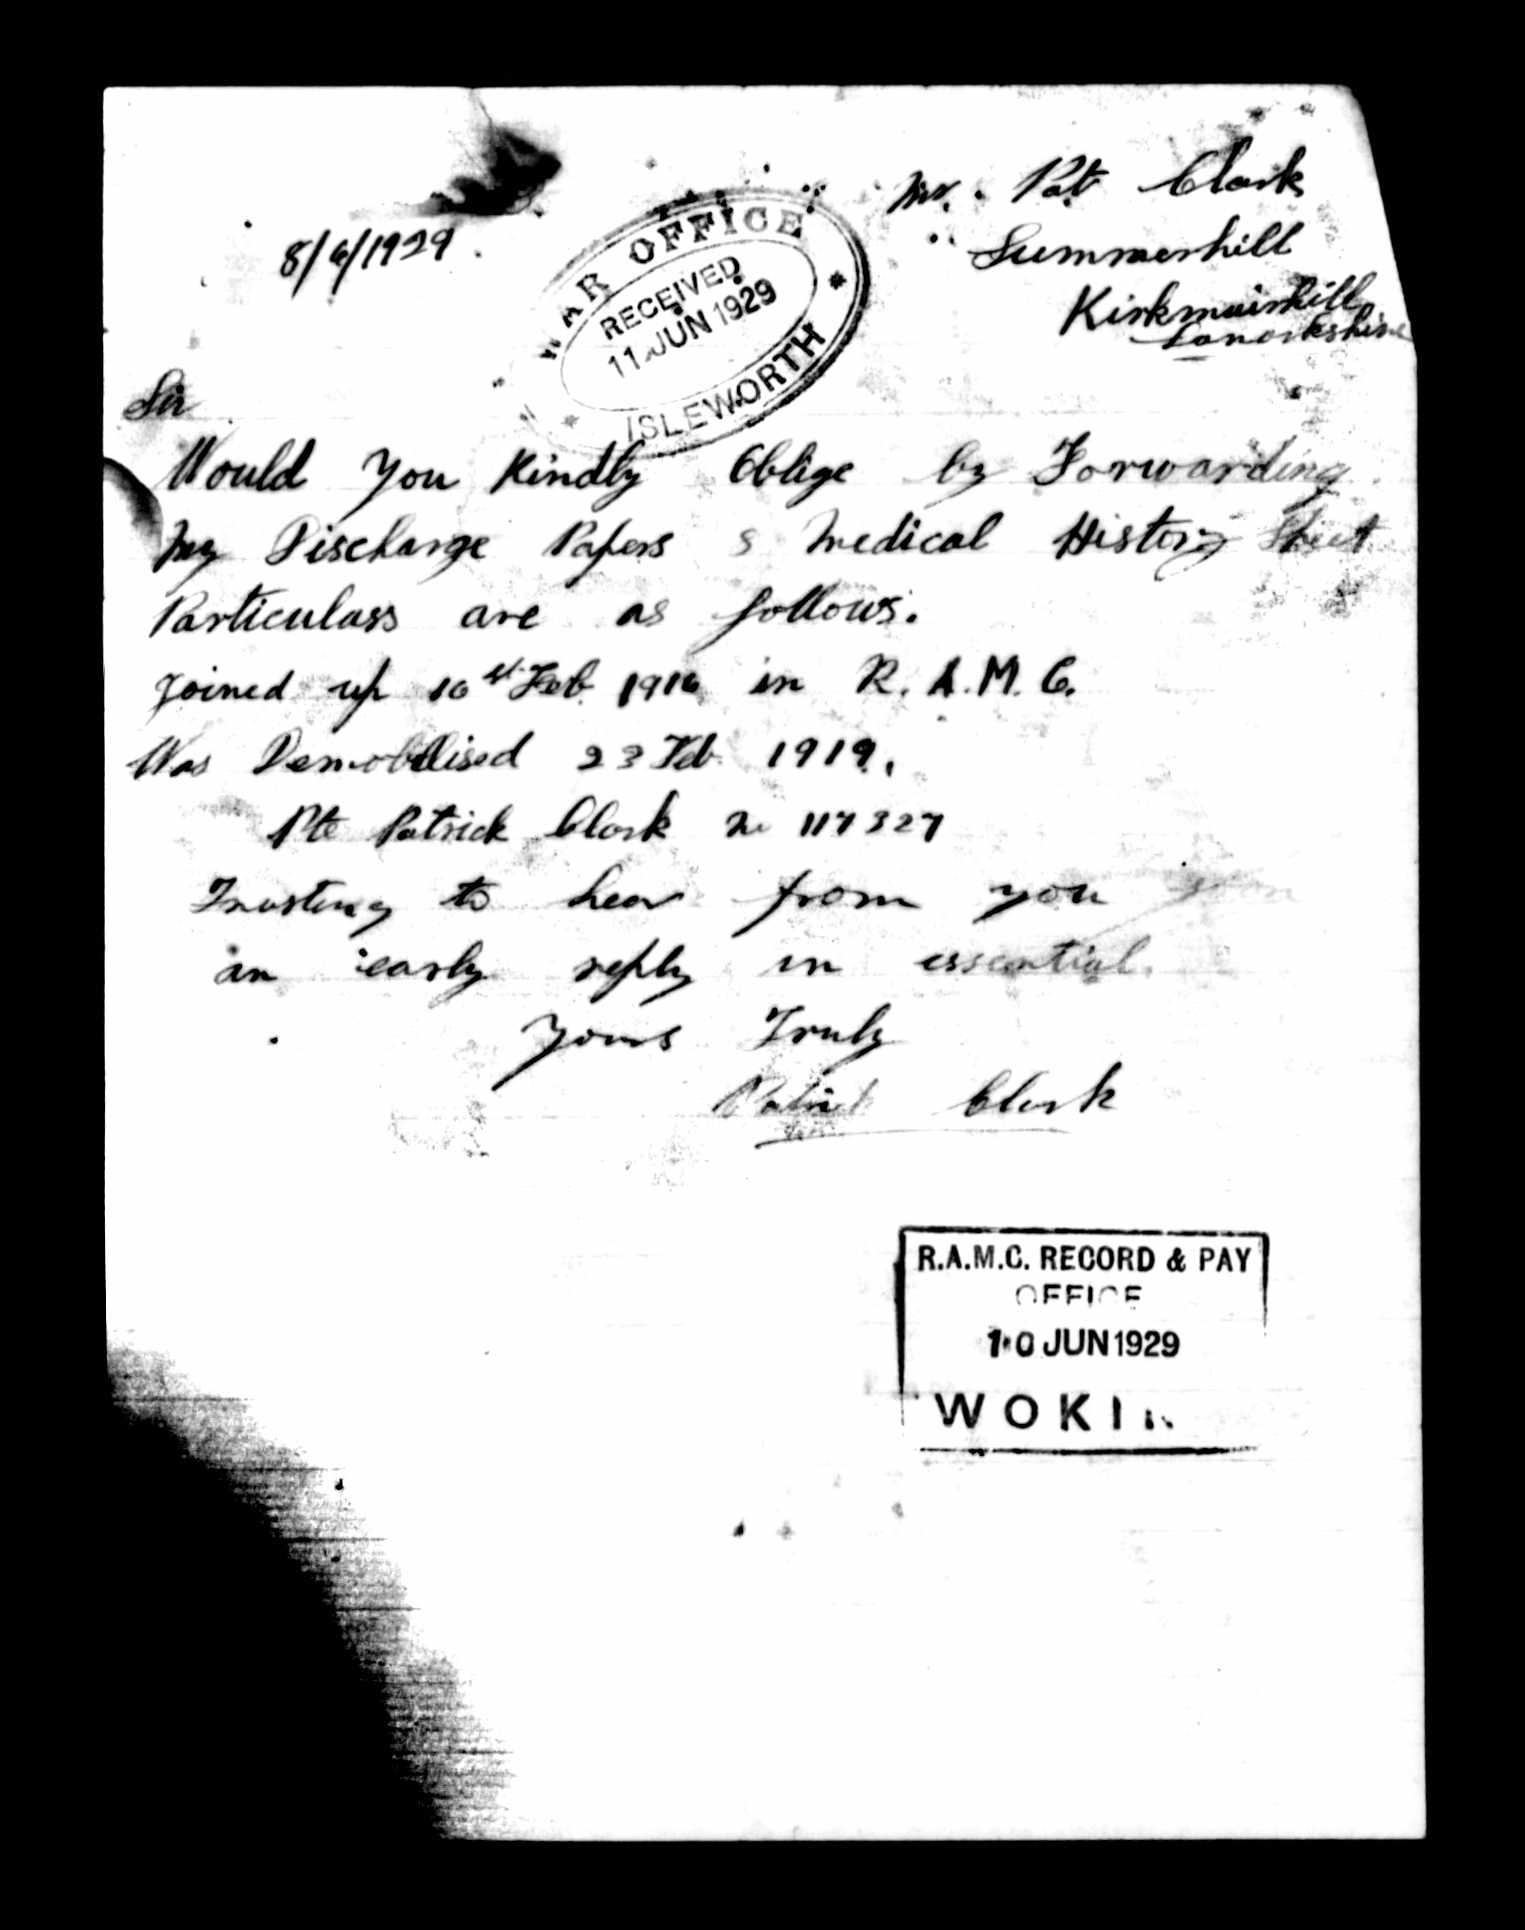 Mr. Pat Clark
8/6/1929.
Summerhill
Kirkmuirhill
Lanarkshire
WAR OFFICE
RECEIVED
11 JUN 1929
ISLEWORTH
Sir
Would You Kindly Oblige by Forwarding
My Discharge Papers & Medical History Sheet
Particulars are as follows.
Joined up 10st Feb. 1916 in R.A.M.C.
Was Demobilised 23 Feb. 1919.
Pte Patrick Clark No 117327
Trusting to hear from you soon
an early reply in essential.
Yours Truly
Patrick Clark
R.A.M.C. RECORD & PAY
OFFICE
10 JUN 1929
WOKIN